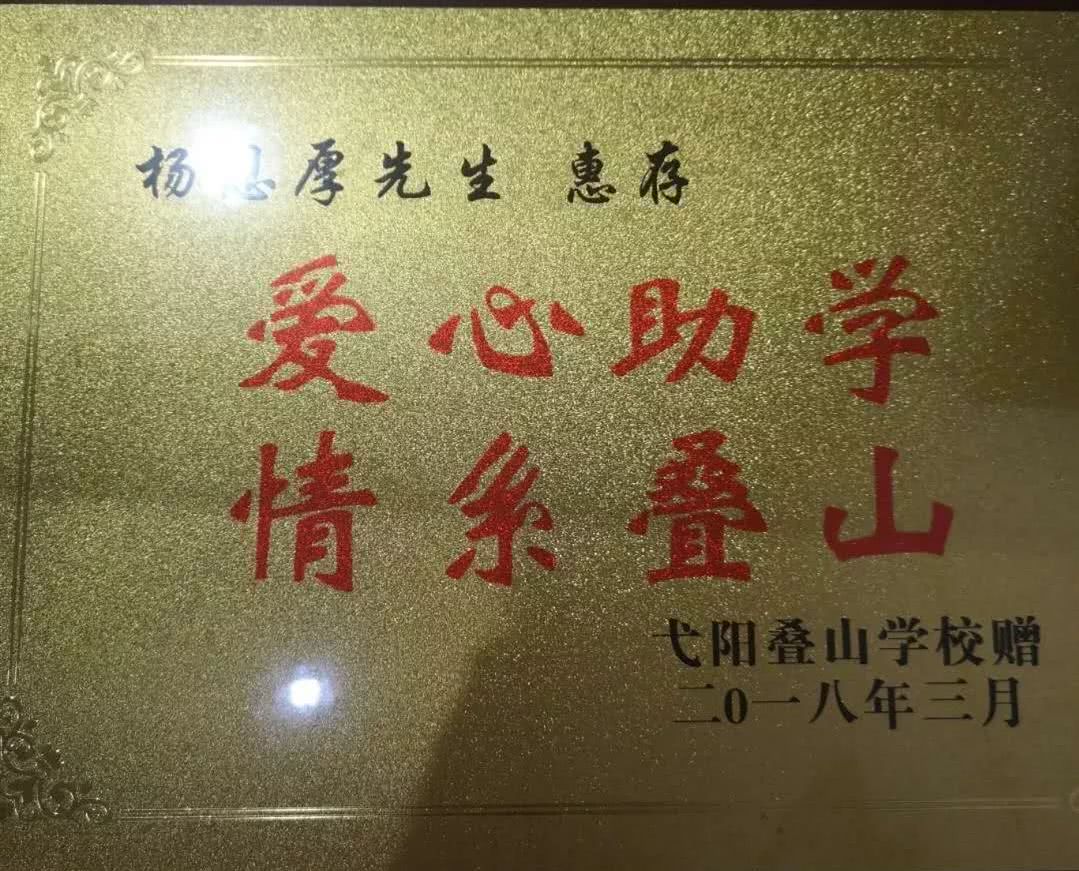 杨厚先生 惠存
爱心助学
情系叠山
弋阳叠山学校赠
二0一八年三月